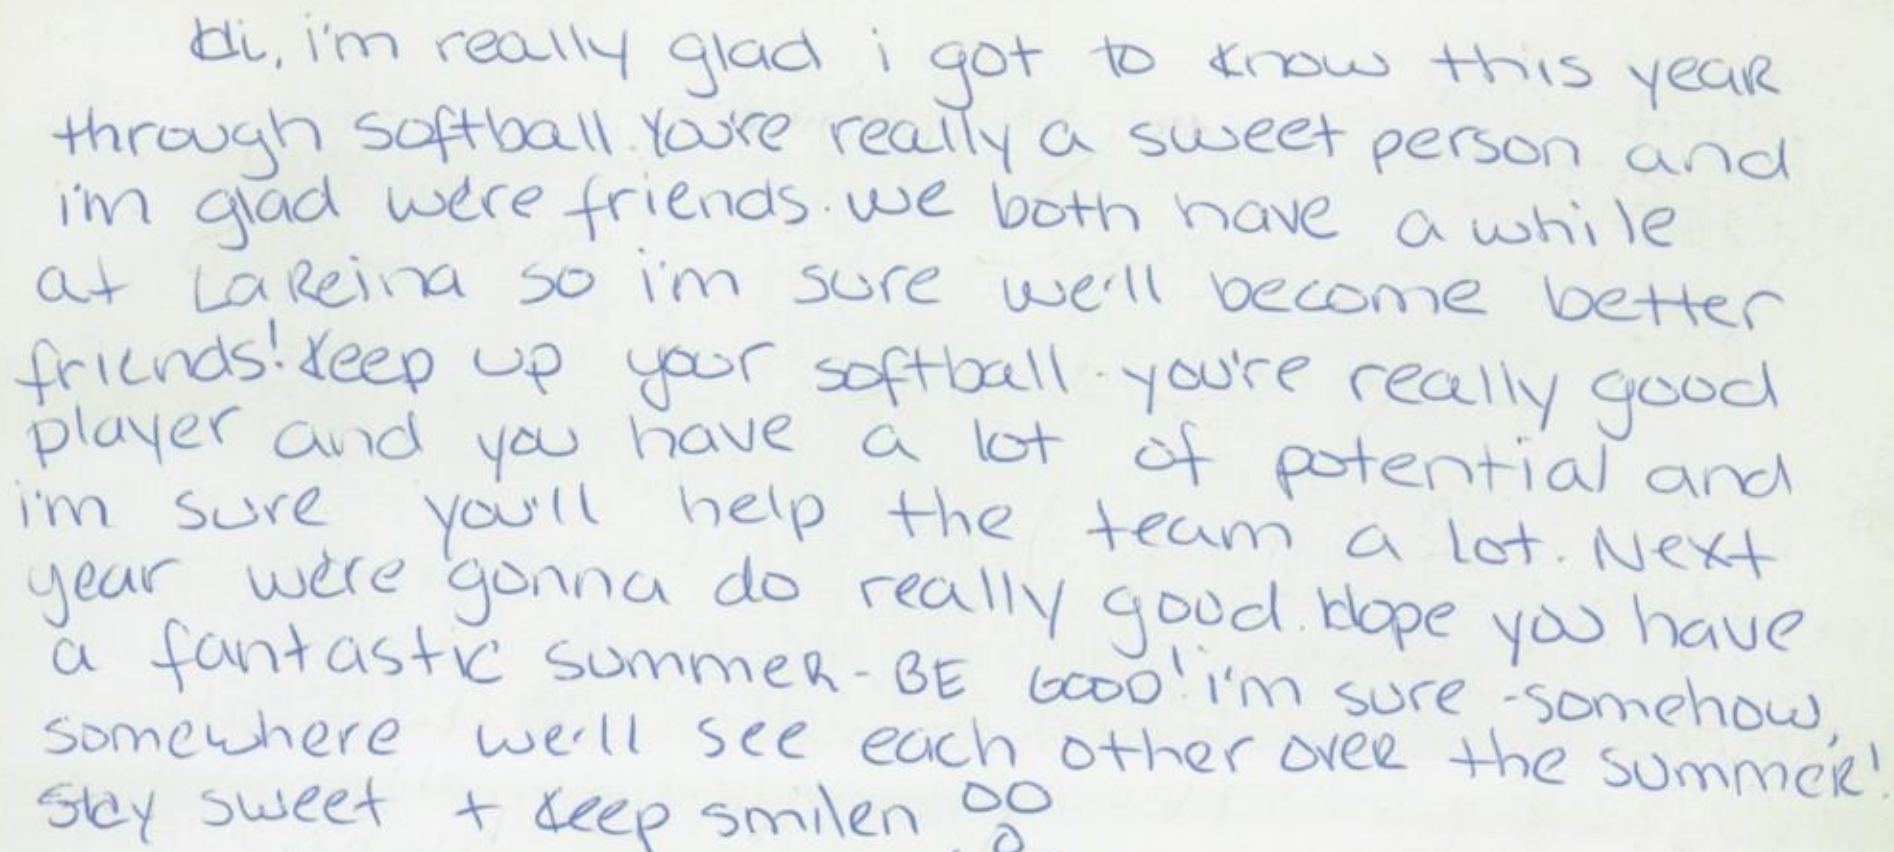 Hi, i'm really glad i got to know this year
through softball. You're really a sweet person and
i'm glad we're friends. we both have a while
at LaReina so i'm sure we'll become better
friends! Keep up your softball - you're really good
player and you have a lot of potential and
i'm sure you'll help the team a lot. Next
year we're gonna do really good. Hope you have
a fantastic summer - BE GOOD! i'm sure - somehow,
somewhere we'll see each other over the summer!
Stay sweet + keep smilen